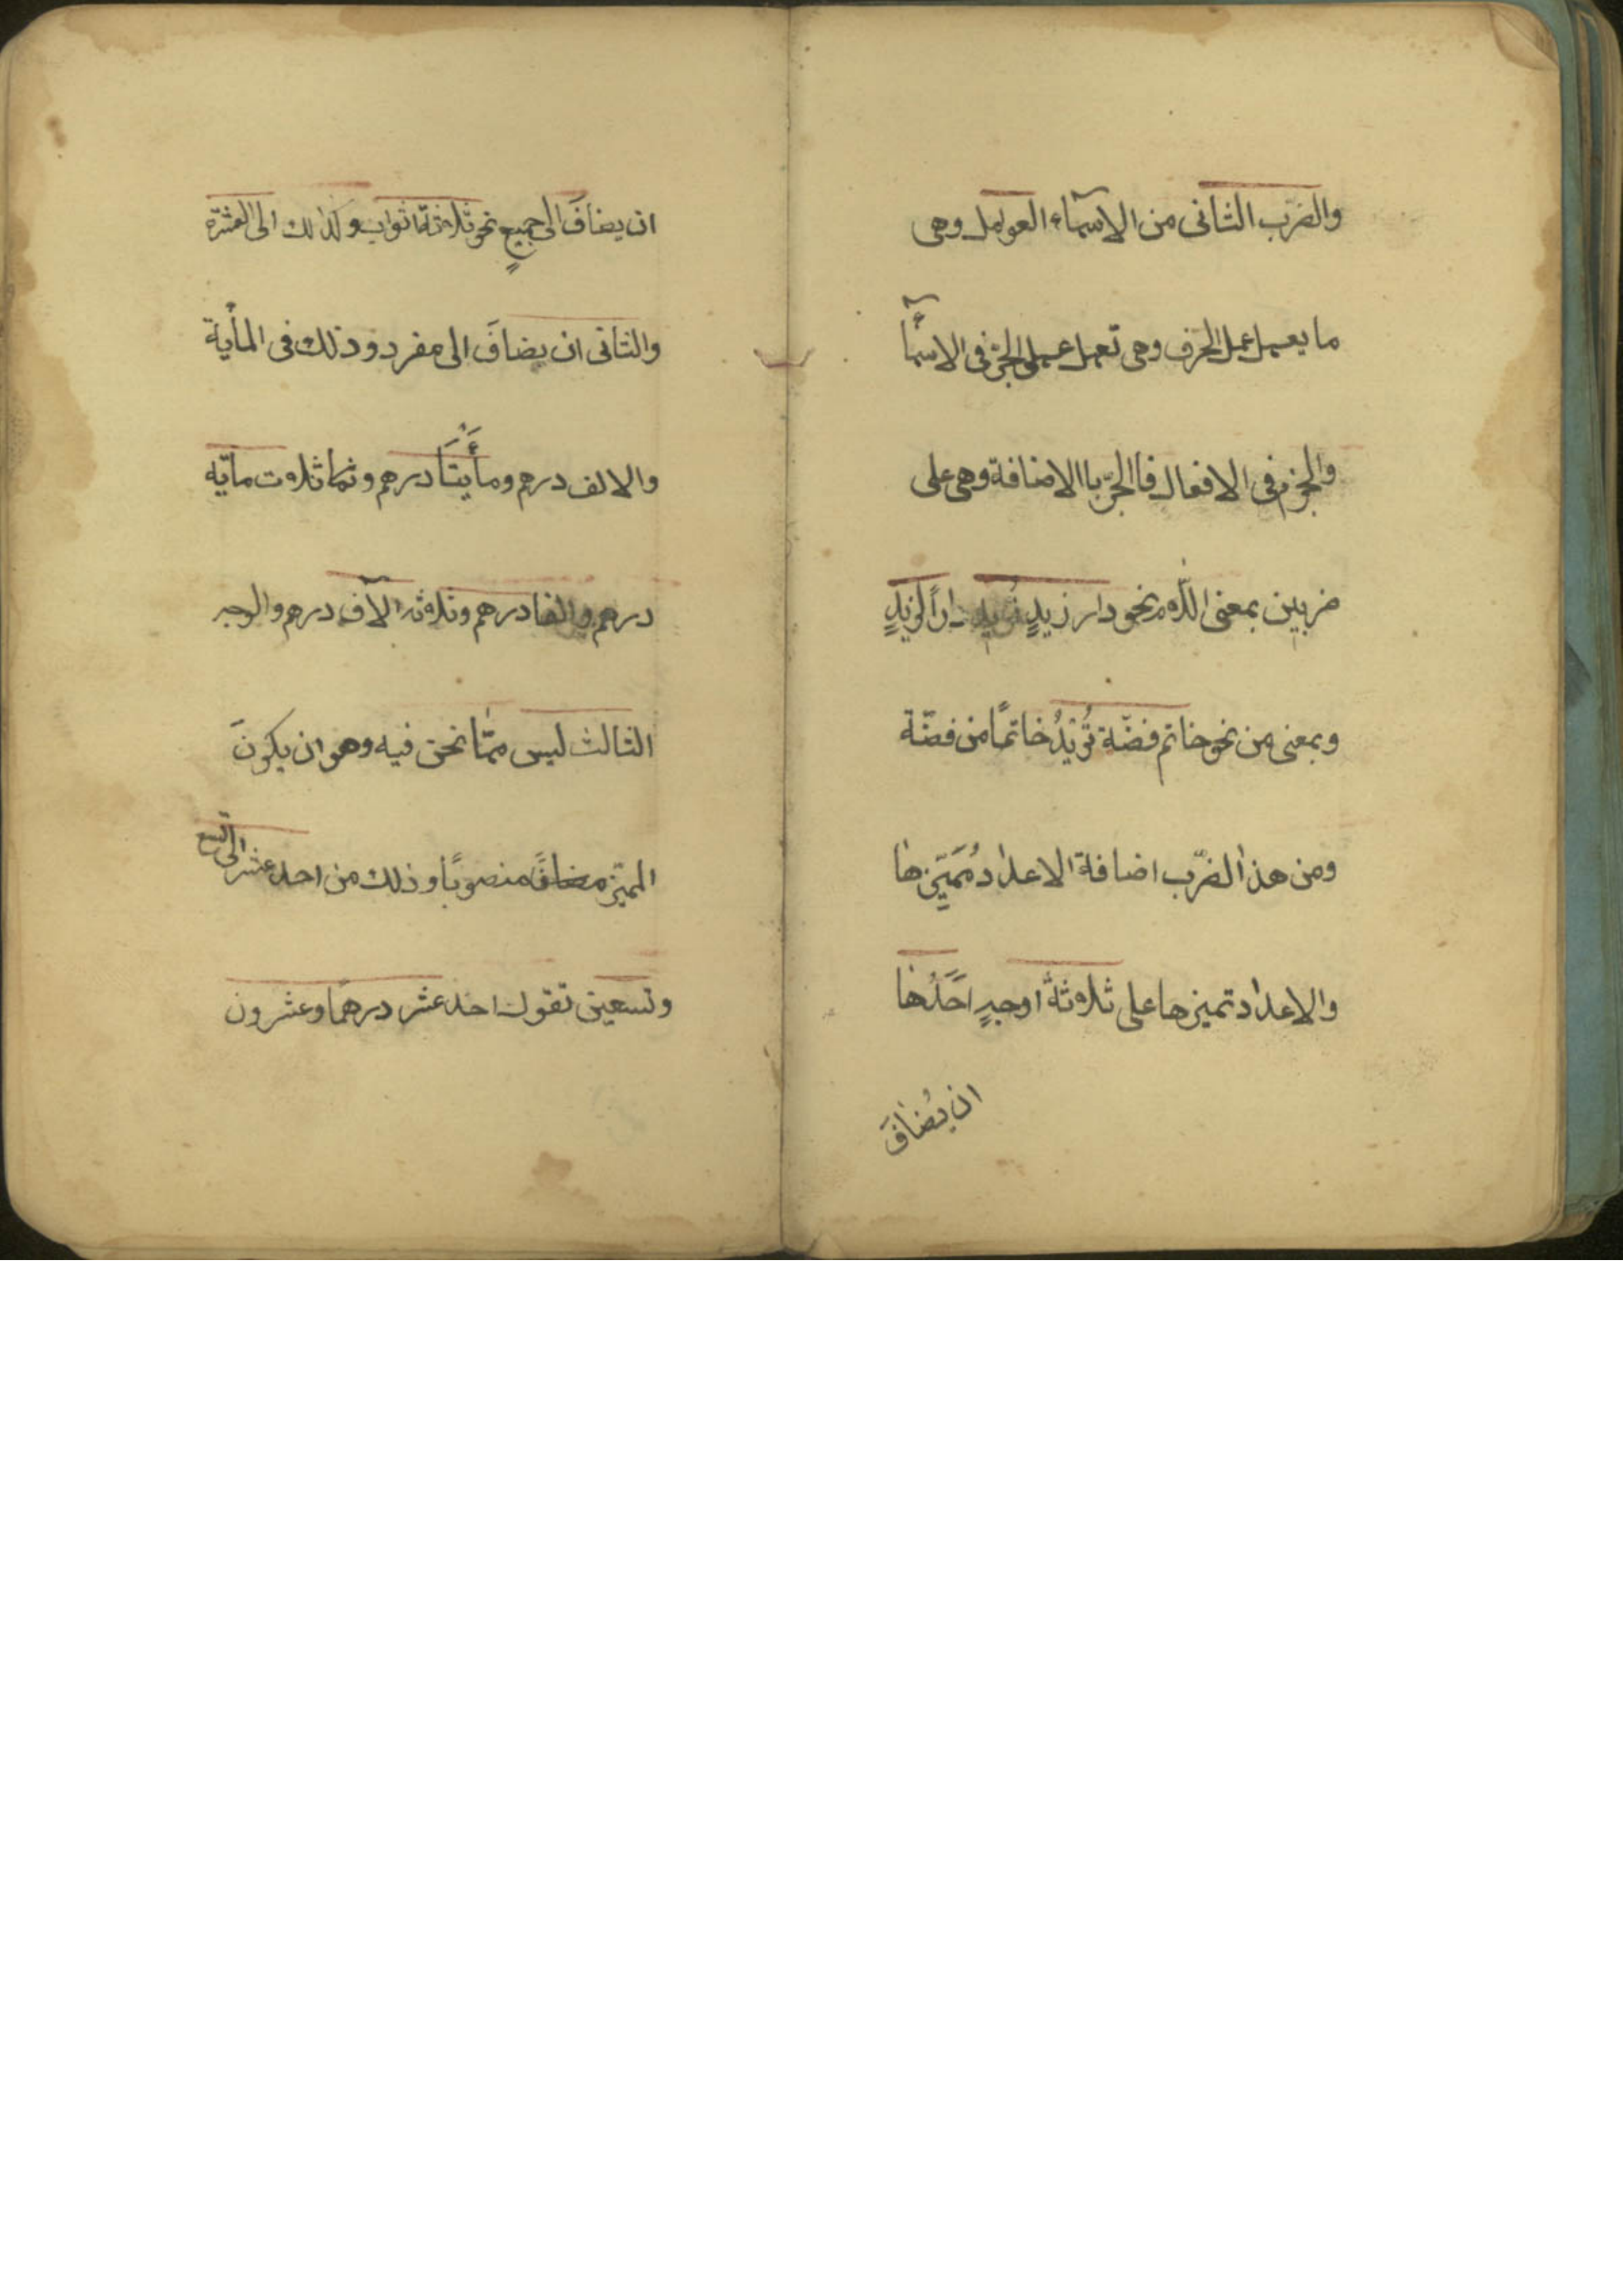 والضرب الثانى من الاسمآء العوامل وهى
ما يعمل عمل الحرف وهى تعمل عمل الجرّ فى الاسمآء
والجزم فى الافعال فاالجرّ باالاضافة وهى على
ضربين بمعنى اللام نحو دار زيدٍ تُريد داراً لزيدٍ
وبمعنى من نحو خاتم فضّة تُريْدُ خاتمًا من فضّة
ومن هذا الضّرب اضافة الاعداد مُمَيّزِها
والاعداد تميزها على ثلاثةُ اوجهٍ احَدُها
ان يُضافَ
ان يضافَ الى جميعٍ نحو ثلاثة اثواب وكذالك الى العشرة
والثانى ان يضافَ الى مفرد وذلك فى المأية
والالف درهم ومأيتَا درهم وثما ثلاث مائه
درهم والفا درهم وثلاثه آلاف درهم والوجه
الثالث ليس ممّا نحن فيه وهو ان يكونَ
المميّز منصوبًا وذلك من احد عشر الى تسع
وتسعين تقول احد عشر درهمًا وعشرون